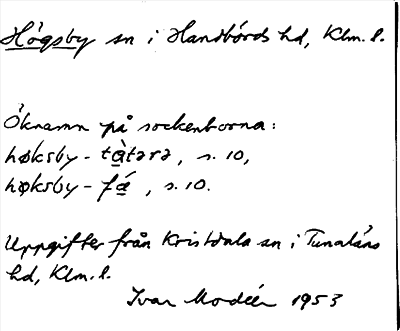 Högsby sn i Handbörds hd, Klm. l.
Öknamn på sockenborna:
høksby - tàtərə, s. 10,
høksby - fá, s. 10.
Uppgifter från Kristdala sn i Tunaläns
hd, Klm. l.
Ivar Modéer 1953